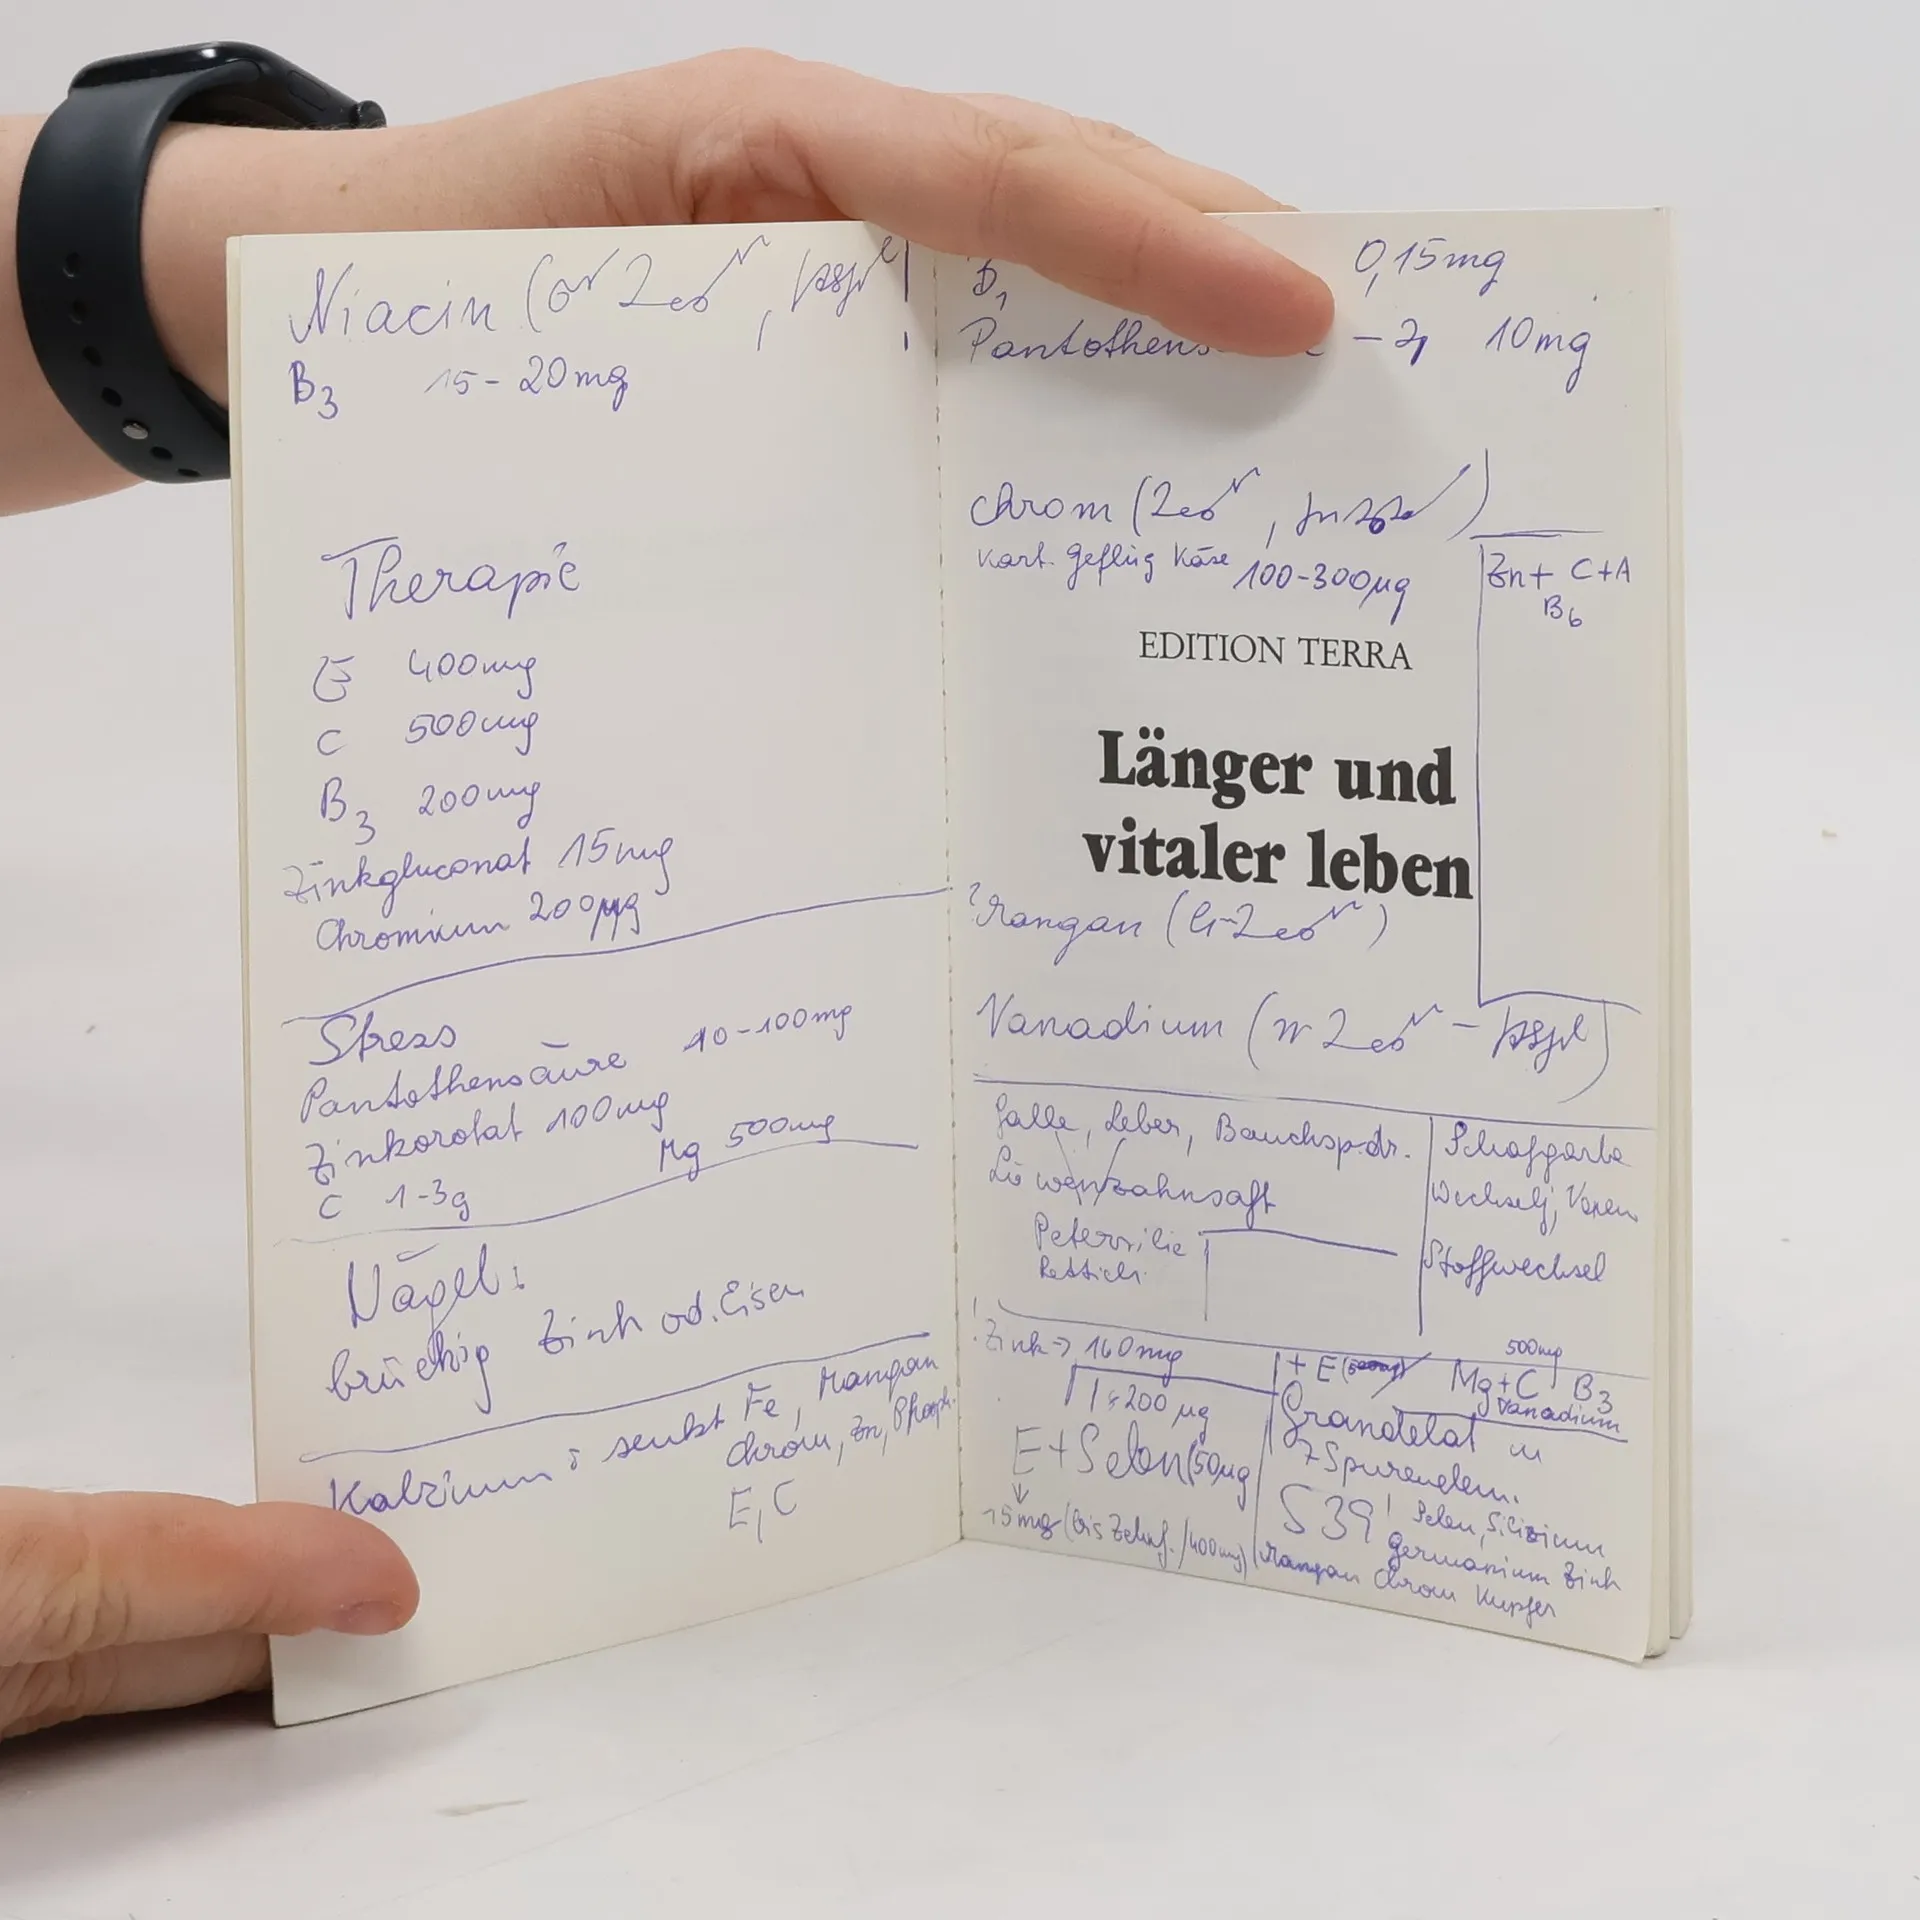 Niacin (
B3 15-20mg
Therapie
E 400mg
C 500mg
B3 200mg
Zinkgluconat 15mg
Chromium 200µg
Stress
Pantothensäure 10-100mg
Zinkorotat 100mg
Mg 500mg
C 1-3g
Nägel:
brüchig Zink od. Eisen
Kalzium: senkt Fe, Mangan
Chrom, Zn, Phosph.
E, C
B1 0,15mg
Pantothens 10mg
Chrom (
Kart. Geflüg Käse 100-300µg
Zn+ C+A
B6
EDITION TERRA
Länger und
vitaler leben
Mangan (
Vanadium (
Galle, Leber, Bauchsp.dr.
Löwenzahnsaft
Petersilie
Rettich
Schafgarbe
Wechselj,
Stoffwechsel
! Zink → 160mg
200 µg
E+Selen (50µg
15mg (bis /400mg)
+ E Mg+C 500mg B3
Vanadium
7 Spurenelem.
S39! Selen, Silizium
Germanium Zink
Mangan Chrom Kupfer